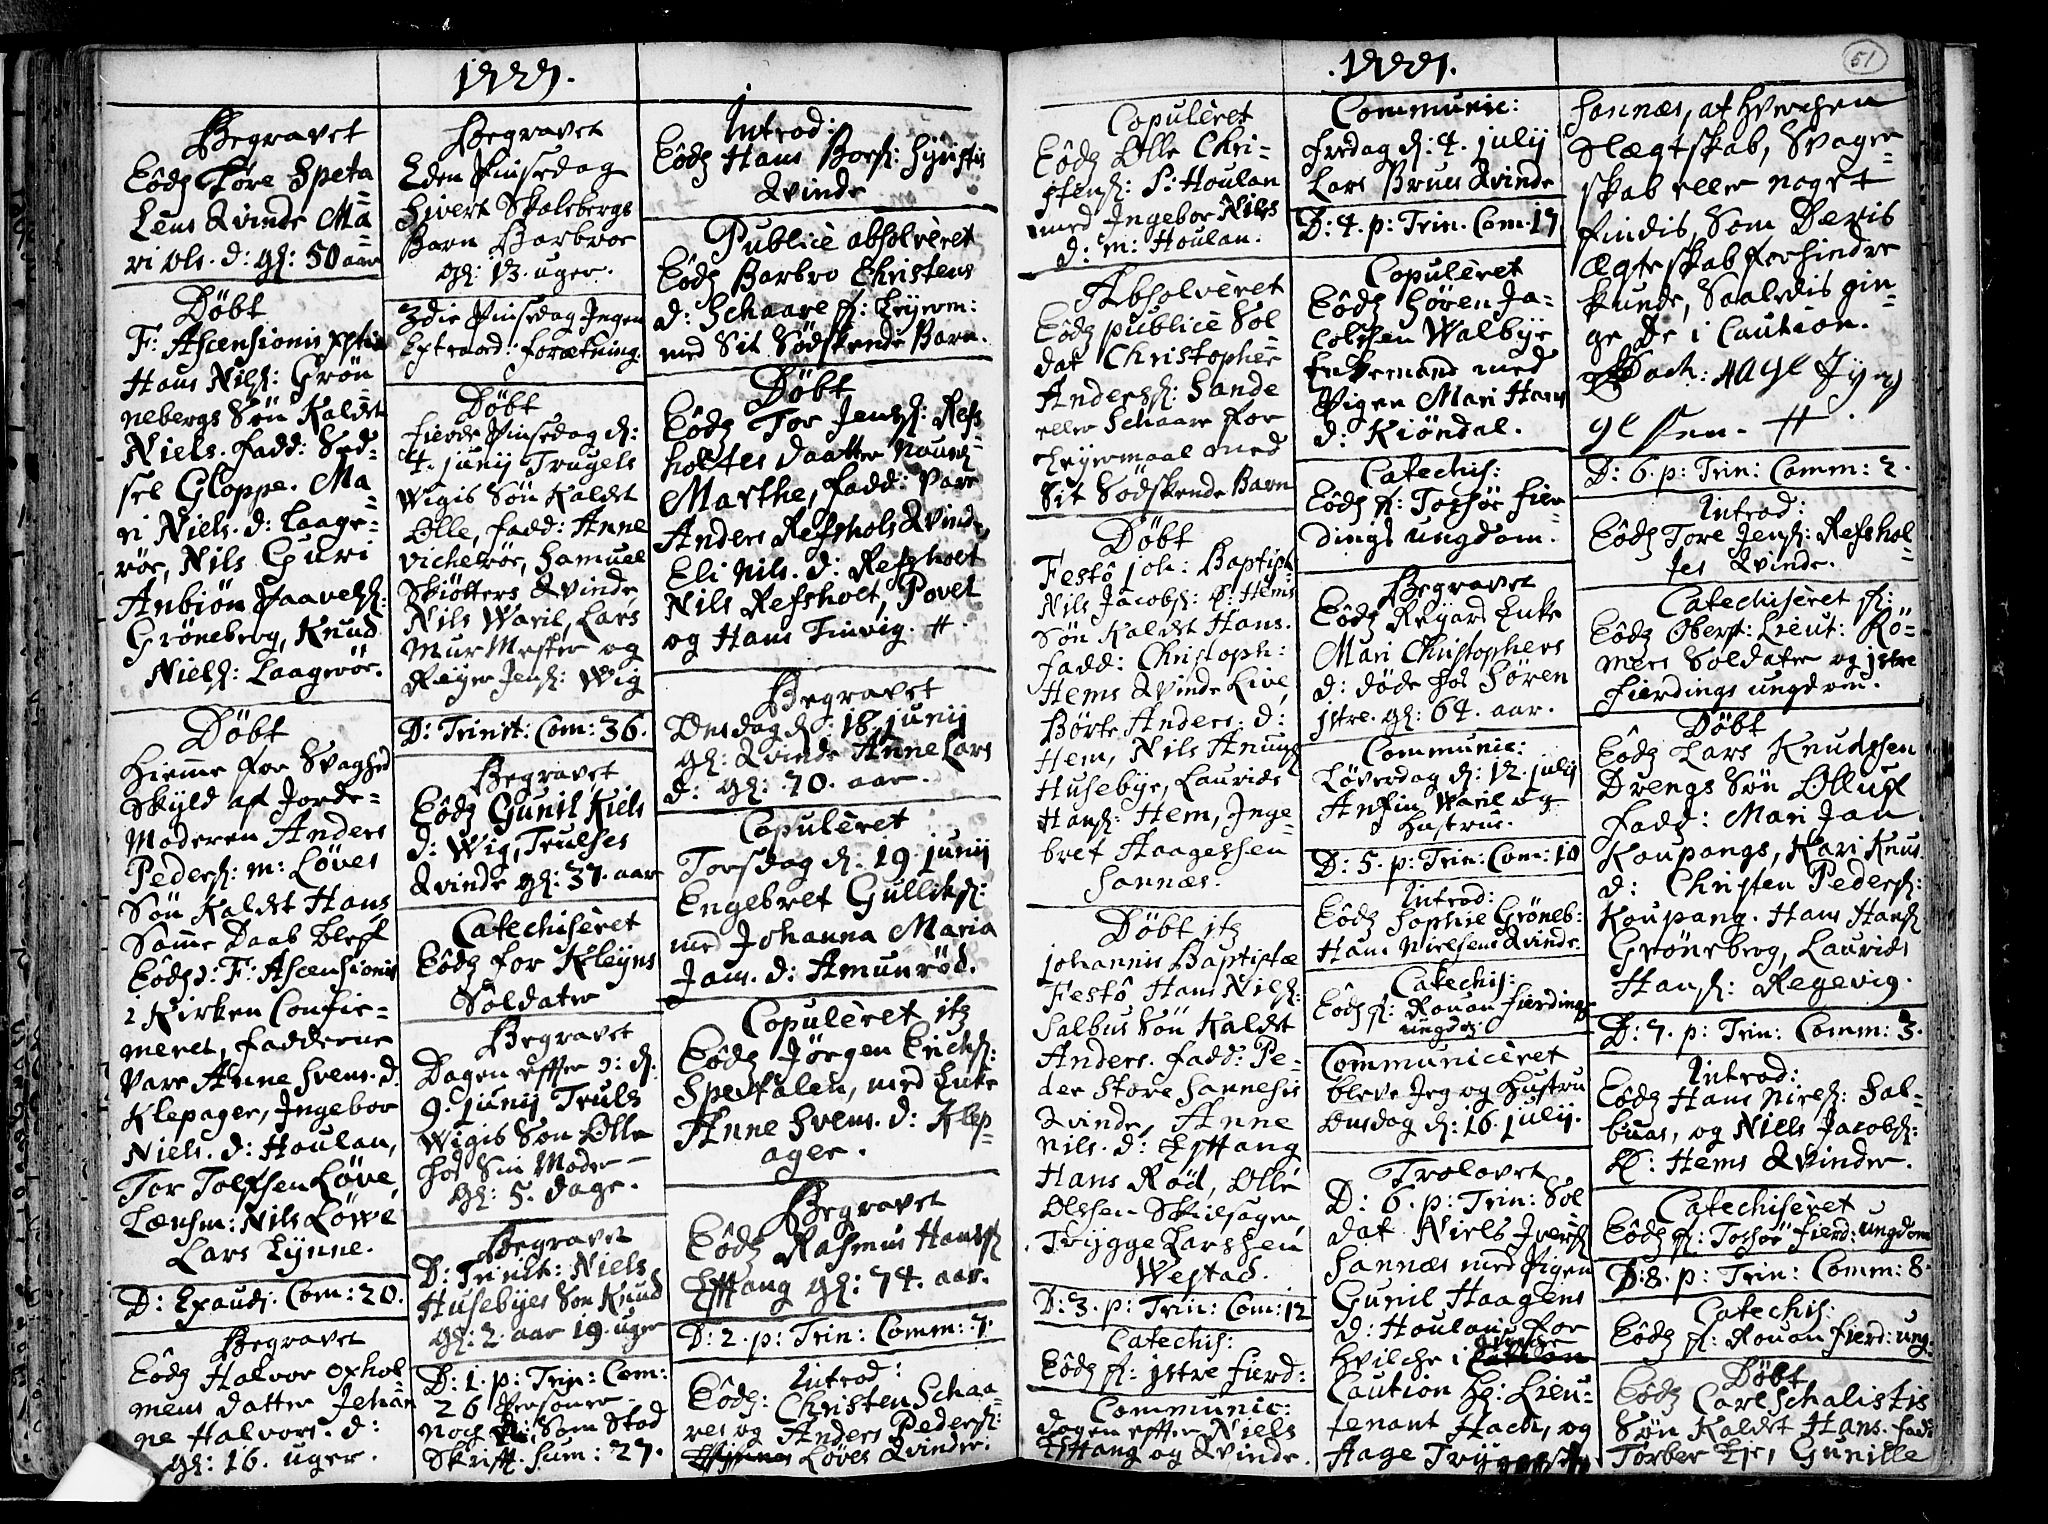 1727.
Begravet
Eôdẽ Tore Speta
lens Qvinde Ma
ri Ols. d: gl: 50 aar
Döbt
F: Ascensionis Xpti
Hans Nilss: Grön
nebergs Sön Kaldet
Niels. Fadd: Sed-
sel Gloppe. Ma-
ri Niels. d: Laage-
röe, Nils Guri
Anbiön Paavelss:
Gröneberg, Knud
Nielss: Laageröe.
Döbt
Hiemme for Svaghed
Skyld af Jorde-
Moderen Anders
Pederss: m: Löves
Sön Kaldet Hans
Samme Daab blef
Eôdẽ d: F: Ascensionis
i Kirken Confir-
meret, Fadderne
Vare Anne Svens. d:
Klepager, Ingebor
Niels. d: Houlan,
Tor Tolfsen Löve,
Lænsm: Nils Löwe
Lars Lynne.
D: Exaudi. Com: 20.
Begravet
Eôdẽ Halvor Oxhol
mens datter Johan
ne Halvors. d:
gl: 16. uger.
Begravet
2den Pinsedag
Sivert Skalebergs
Barn Barbroe
gl: 13. uger.
3die Pinsedag Ingen
Extraord: Forretning.
Döbt
Fierde Pinsedag d:
4. junij Trugels
Wigis Sön Kaldet
Olle, Fadd: Anne
Vicheröe, Samuel
Skiötters Qvinde
Nils Waril, Lars
Mur Mester og
Reyer Jenss: Wig
D: Trinit: Com: 36.
Begravet
Eôdẽ Gunil Niels
d: Wig, Trulses
Qvinde gl: 37. aar
Catechiseret
Eôdẽ for Kleyns
Soldater
Begravet
Dagen effter ɔ: d.
9. junij Truls
Wigis Son Olle
hos Sin Moder
gl: 5. dage.
Begravet
D: Trinit: Niels
Husebyes Son Knud
gl: 2. aar 19. uger
D: 1. p: Trin: Com:
26 Personer
noch Som Stod
Skrifft. Sum: 27.
Introd:
Eôdẽ Hans Boess:
Qvinde
Publice absolveret
Eôdẽ Barbro Christens
d: Schaare f: Leyerm:
med Sit Södskende Barn.
Döbt
Eôdẽ Tor Jenss: Refs
holtes Daatter naunl:
Marthe, Fadd: Vare
Anders Refshols Qvinde,
Eli Nils. d: Refsholt
Nils Refsholt, Povel
og Hans Tinvig.
Begravet
Onsdag d. 18 junij
gl: Qvinde Anne Lars
d: gl: 70. aar.
Copuleret
Torsdag d. 19. junij
Engebret Gulliks:
med Johanna Maria
Jans. d: Amunröd.
Copuleret itẽ
Eôdẽ Jörgen Erichss:
Spetalen, med Enke
Anne Svens. d: Klep-
ager.
Begravet
Eôdẽ Rasmus Hanss
Efftang gl: 74. aar.
D: 2. p: Trin: Comm: 7.
Introd:
Eôdẽ: Christen Schaa
res og Anders Pederss:
Löves Qvinder.
1727.
51
Copuleret
Eôdẽ Olle Chri-
stenss: S: Houlan
med Ingebor Nils
d: m: Houlan.
Absolveret
Eôdẽ publice Sol
dat Christopher
Anderss: Sande
eller Schaare for
Leyermaal med
Sit Södskende Barn
Döbt
Festô Joh: Baptist
Nils Jacobss: Hems
Sön Kaldet Hans.
Fadd: Christoph:
Hems Qvinde Live,
Börte Anders. d:
Hem, Nils Anunss
Husebye, Laurids
Hanss: Hem, Inge-
bret Haagessen
Sannæs.
Döbt itẽ
Johannis Baptistæ
Festô Hans Nielss:
Salbus Sön Kaldet
Anders. Fadd: Pe-
der Store Sannesis
Qvinde, Anne
Nils. d: Efftang
Hans Röd, Olle
Olssen Skielsagen,
Trygge Larssen
Westad.
D: 3. p: Trin: Com: 12
Catechis:
Eôdẽ f: Istre Fierd:
Communic:
dagen effter Niels
Efftang og Qvinde.
Communic:
Fredag d: 4. julij
Lars Brues Qvinde
D: 4. p: Trin. Com. 17
Copuleret
Eôdẽ Sören Ja-
cobsen Walbye
Enkemand med
Pigen Mari Hans
d: Kiöndal.
Catechis:
Eôdẽ f: Tossöe Fier-
dings ungdom.
Begravet
Eôdẽ Reyars Enke
Mari Christophers
d: döde hos Sören
Istre. gl: 64. aar.
Communic:
Löverdag d: 12. julij
Anfin Waril og
Hustrue.
D: 5. p: Trin: Com: 10
Introd:
Eôdẽ Sophie Gröneb:
Hans Nielsens Qvinde.
Catechis:
Eôdẽ f: Rouan Fierdings
ungd:
Communiceret
bleve Jeg og Hustru
Onsdag d: 16. julij.
Trolovet
D: 6. p: Trin: Sol
dat Niels Iverss
Sannæs med Pigen
Gunil Haagens
d: Houlan, for
Hvilche i
Caution Hr: Lieu-
tenant Hach, og
Aage Tryggess
Sannæs, at hverchen
Slægtskab, Svager-
skab eller noget
Findis, Som Deris
Ægteskab forhindre
kunde, Saaledis gin-
ge De i Caution.
D: 6. p: Trin: Comm: 2.
Introd:
Eôdẽ Tore Jenss: Refshol-
tes Qvinde.
Catechiseret f:
Eôdẽ Oberst: Lieut: Rö-
mers Soldater og Istre
Fierdings ungdom.
Döbt
Eôdẽ Lars Knudsen
Drengs Sön Olluf
Fadd: Mari Jan
Koupangs, Kari Knus.
d: Christen Pederss:
Koupang. Hans Hanss
Gröneberg, Laurids
Hanss: Regevig.
D: 7. p: Trin: Comm: 3.
Introd:
Eôdẽ Hans Nielss: Sal-
buas, og Niels Jacobss:
Hems Qvinder.
Catechiseret
Eôdẽ f: Tossöe Fierd: ungdom
D: 8. p: Trin: Comm: 8.
Catechis:
Eôdẽ f: Rouan Fierd: ung.
Döbt
Eôdẽ Carl Schalistis
Sön Kaldet Hans. Fad:
Torber Lie, Gunille